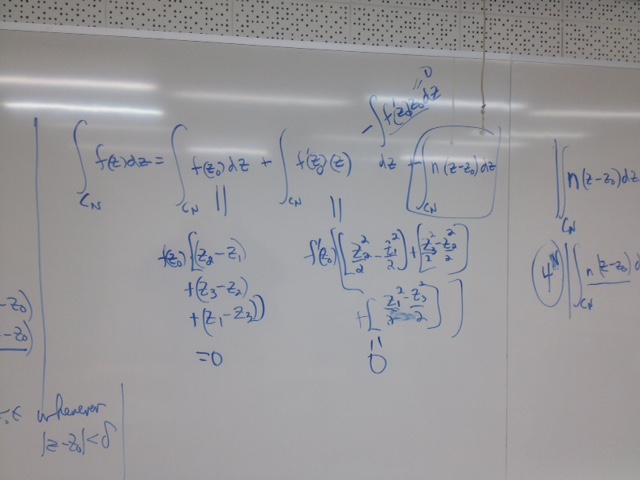 -∫ f'(z₀)z₀dz = 0
∫_{C_N} f(z)dz = ∫_{C_N} f(z₀)dz + ∫_{C_N} f'(z₀)(z) dz + ∫_{C_N} n(z-z₀)dz
f(z₀)[(z₂-z₁)
+(z₃-z₂)
+(z₁-z₃)]
=0
f'(z₀)[[z₂²/2 - z₁²/2] + [z₃²/2 - z₂²/2]
+[z₁²/2 - z₃²/2]]
0
|∫_{C_N} n(z-z₀)dz
4^N |∫_{C_N} n(z-z₀)d
-z₀)
-z₀)
<ε whenever
|z-z₀|<δ